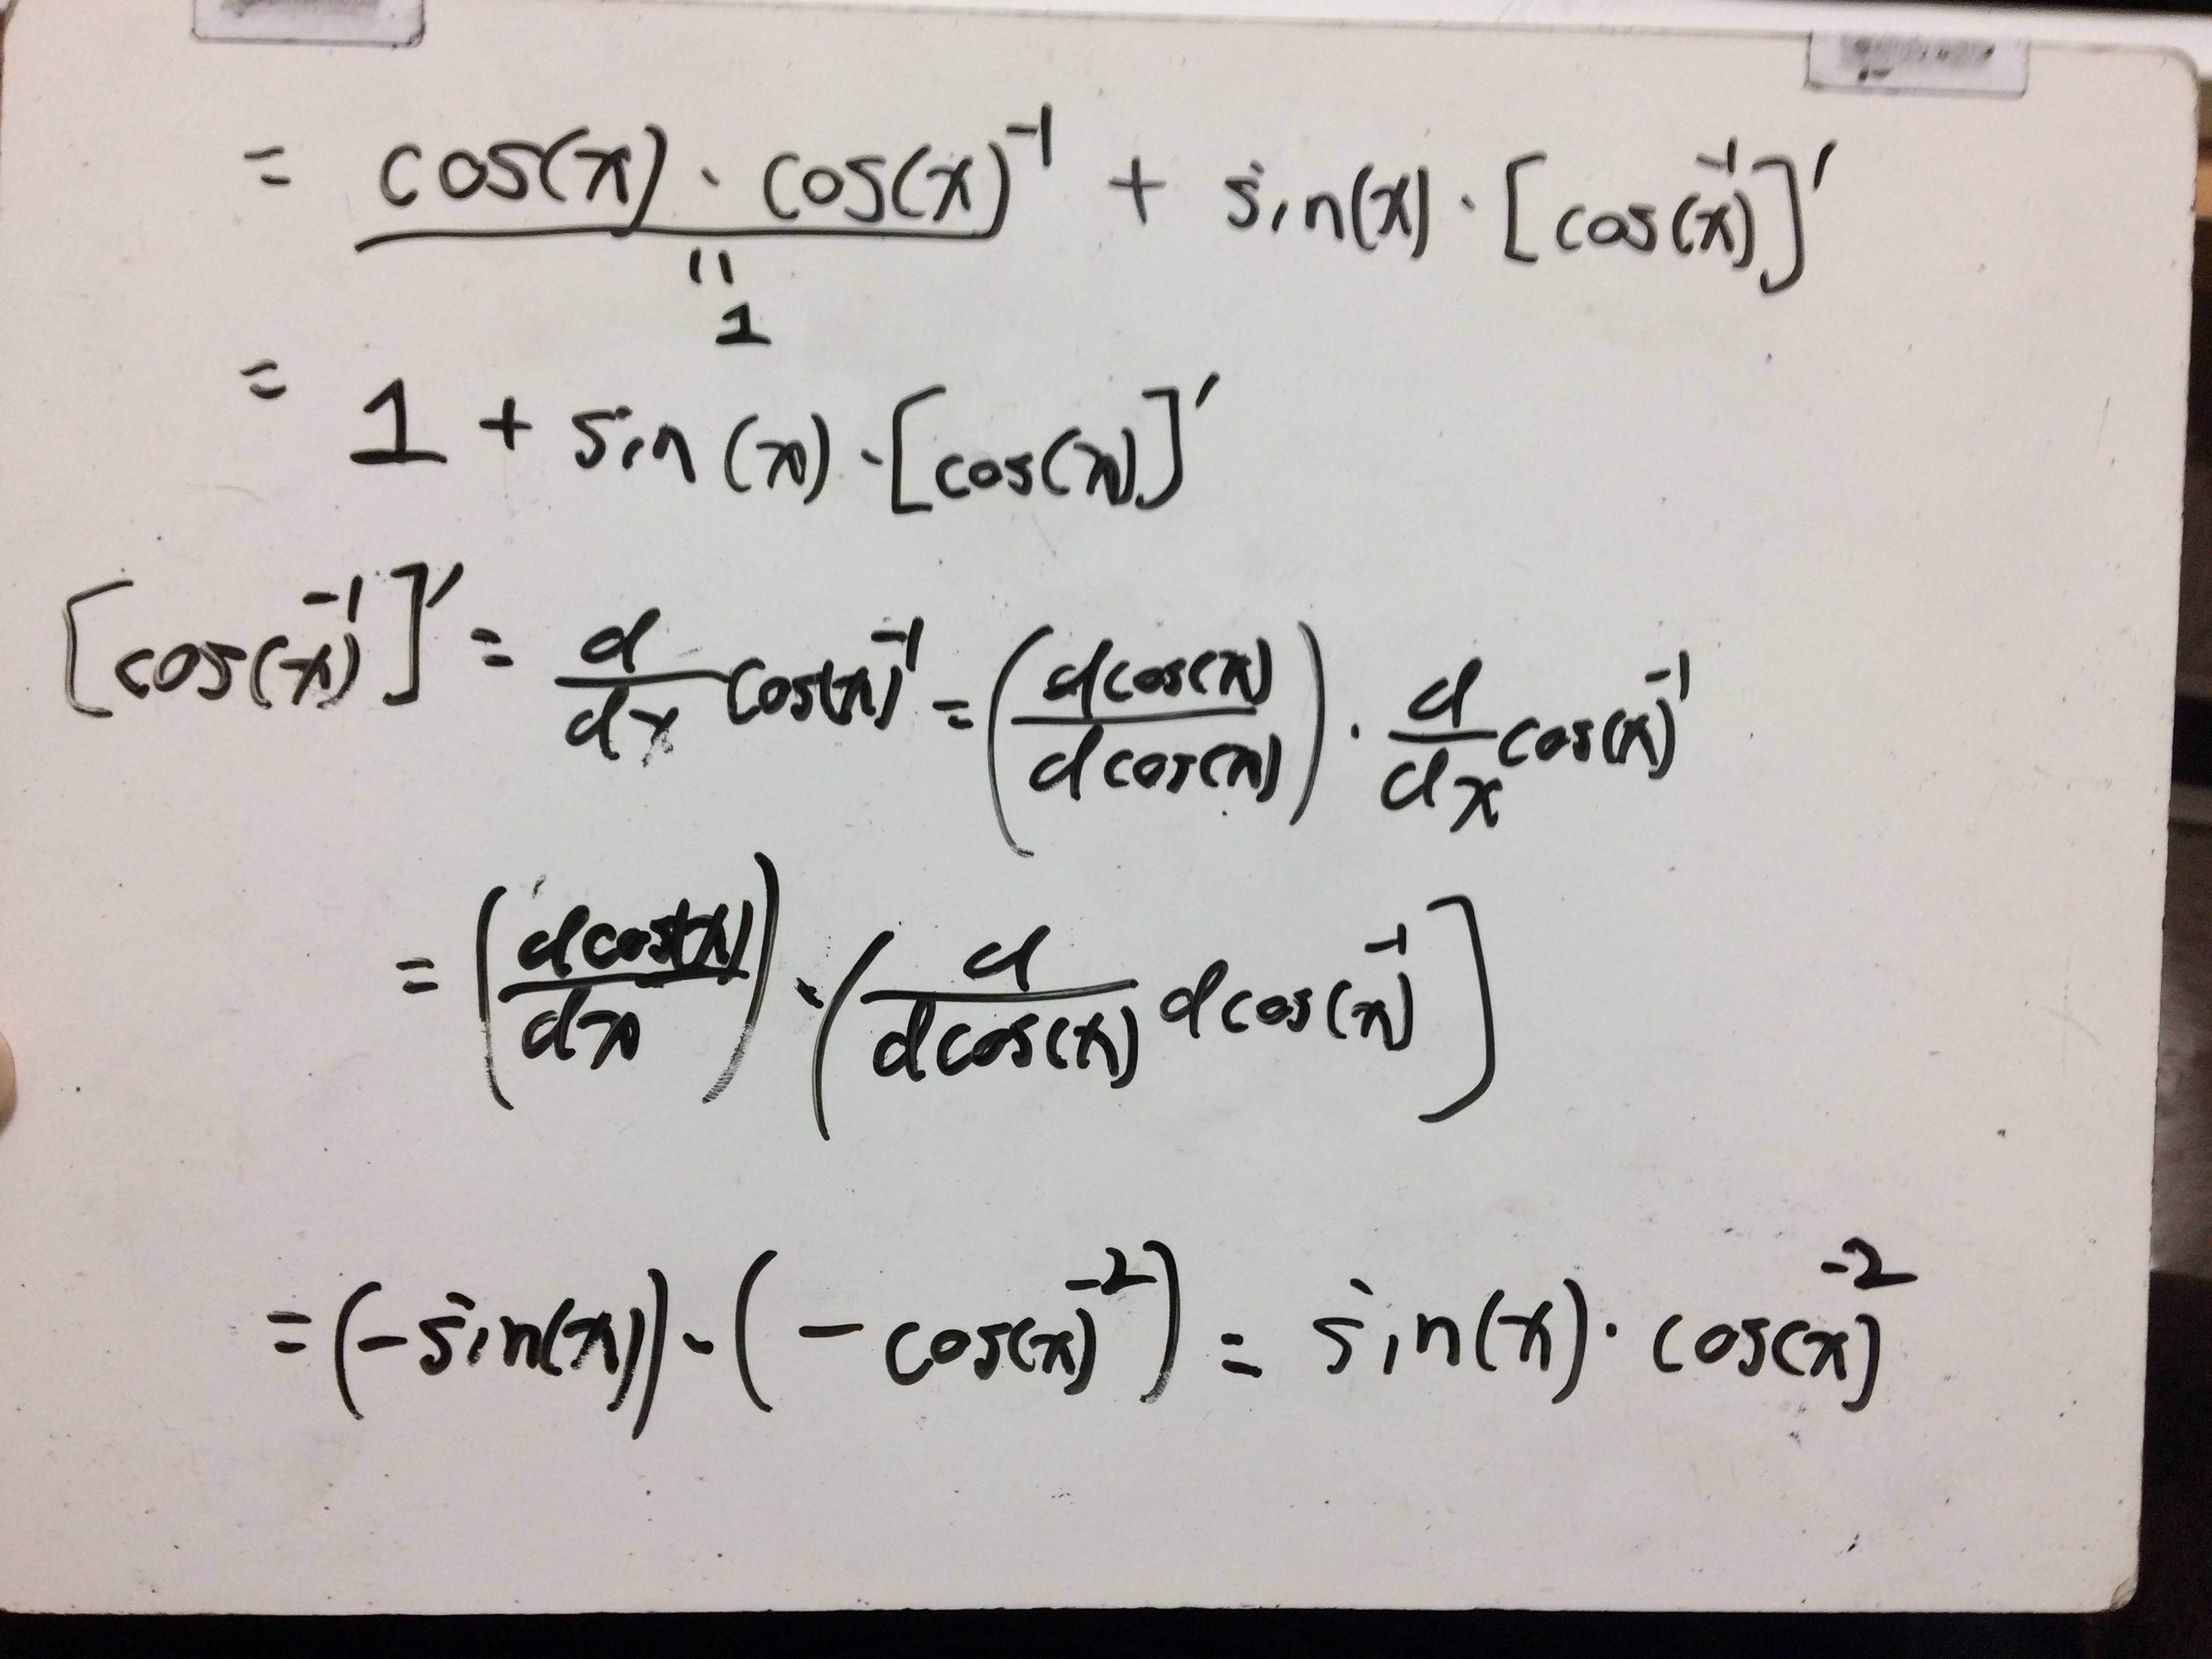 = cos(x) · cos(x)⁻¹ + sin(x) · [cos(x)⁻¹]′
"
1
= 1 + sin(x) · [cos(x)]′
[cos(x)⁻¹]′ = d/dx cos(x)⁻¹ = (dcos(x)/dcos(x)) · d/dx cos(x)⁻¹
= (dcos(x)/dx) · (d/dcos(x) dcos(x)⁻¹]
= (-sin(x)) · (-cos(x)⁻²) = sin(x) · cos(x)⁻²